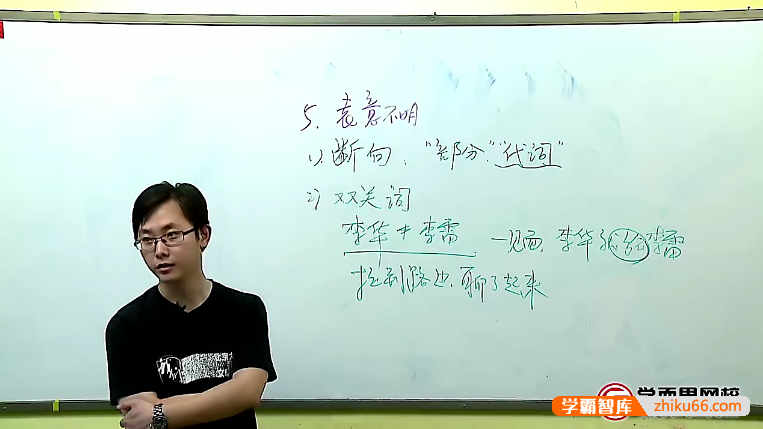 5. 表意不明
1) 断句. "部分" "代词"
2) 双关词
李华 李雷 一见面, 李华 李雷
拉到路边, 聊了起来
学而思网校
学霸智库
zhiku66.com